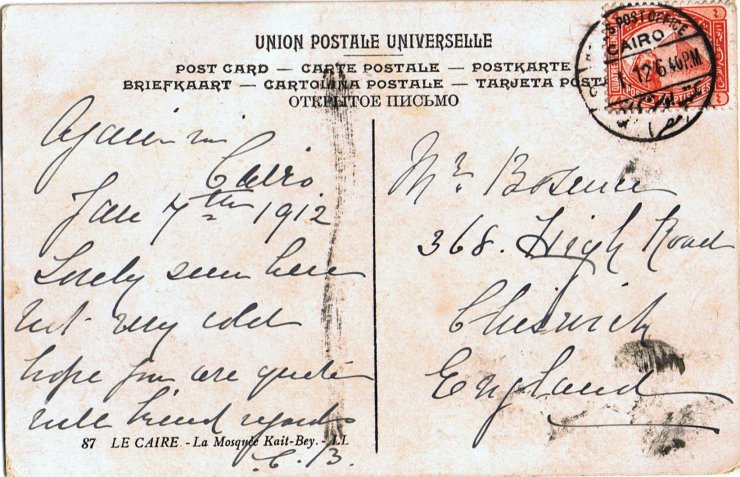 UNION POSTALE UNIVERSELLE
POST CARD — CARTE POSTALE — POSTKARTE
BRIEFKAART — CARTOLINA POSTALE — TARJETA POSTA
ОТКРЫТОЕ ПИСЬМО
POST OFFICE
CAIRO
12 6 40 PM
Again in
Cairo
Jan 7th 1912
Lovely here
but very cold
hope you are quite
well kind regards
C. B.
87 LE CAIRE - La Mosquée Kait-Bey. - LL
Mr.
368. High Road
Chiswick
England